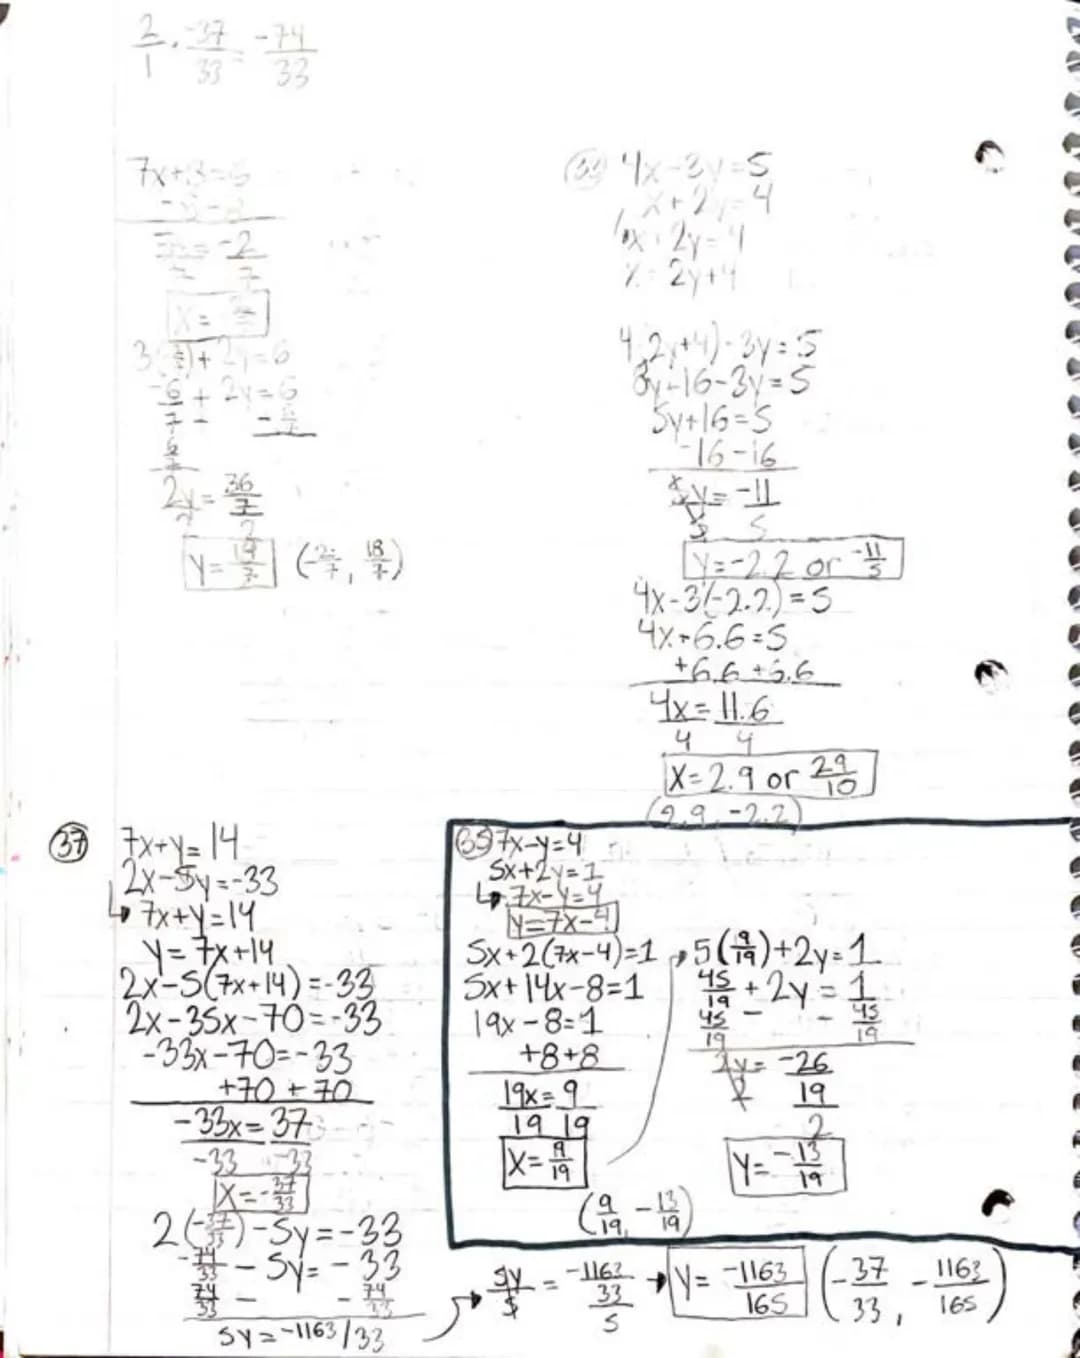 2/1 · -37/33 = -74/33
7x+3=5
= -2
7
X=
+ 2y=6
-6/7 + 2y=6
2y = 36/7
2
Y= /7 ( /7, 18/7)
4x-3y=5
x+2y=4
x+2y=4
x=2y+4
4(2y+4)-3y=5
8y+16-3y=5
5y+16=5
-16 -16
5y = -11
5 5
Y=-2.2 or -11/5
4x-3(-2.2)=5
4x-6.6=5
+6.6 +6.6
4x = 11.6
4 4
X=2.9 or 29/10
(2.9, -2.2)
37 7x+y=14
2x-5y=-33
↳ 7x+y=14
y=7x+14
2x-5(7x+14)=-33
2x-35x-70=-33
-33x-70=-33
+70 +70
-33x = 37
-33 -33
X=-37/33
2(-37/33)-5y=-33
-74/33 - 5y = -33
74/33 - - 74/33
5y=-1163/33
5y/5 = -1163/33/5 → Y= -1163/165 (-37/33, -1163/165)
35 7x-y=4
5x+2y=1
↳ 7x-y=4
y=7x-4
5x+2(7x-4)=1
5x+14x-8=1
19x-8=1
+8 +8
19x = 9
19 19
X=9/19
5(9/19)+2y=1
45/19 + 2y = 1
45/19 - - 45/19
2y = -26/19
2 2
Y= -13/19
(9/19, -13/19)